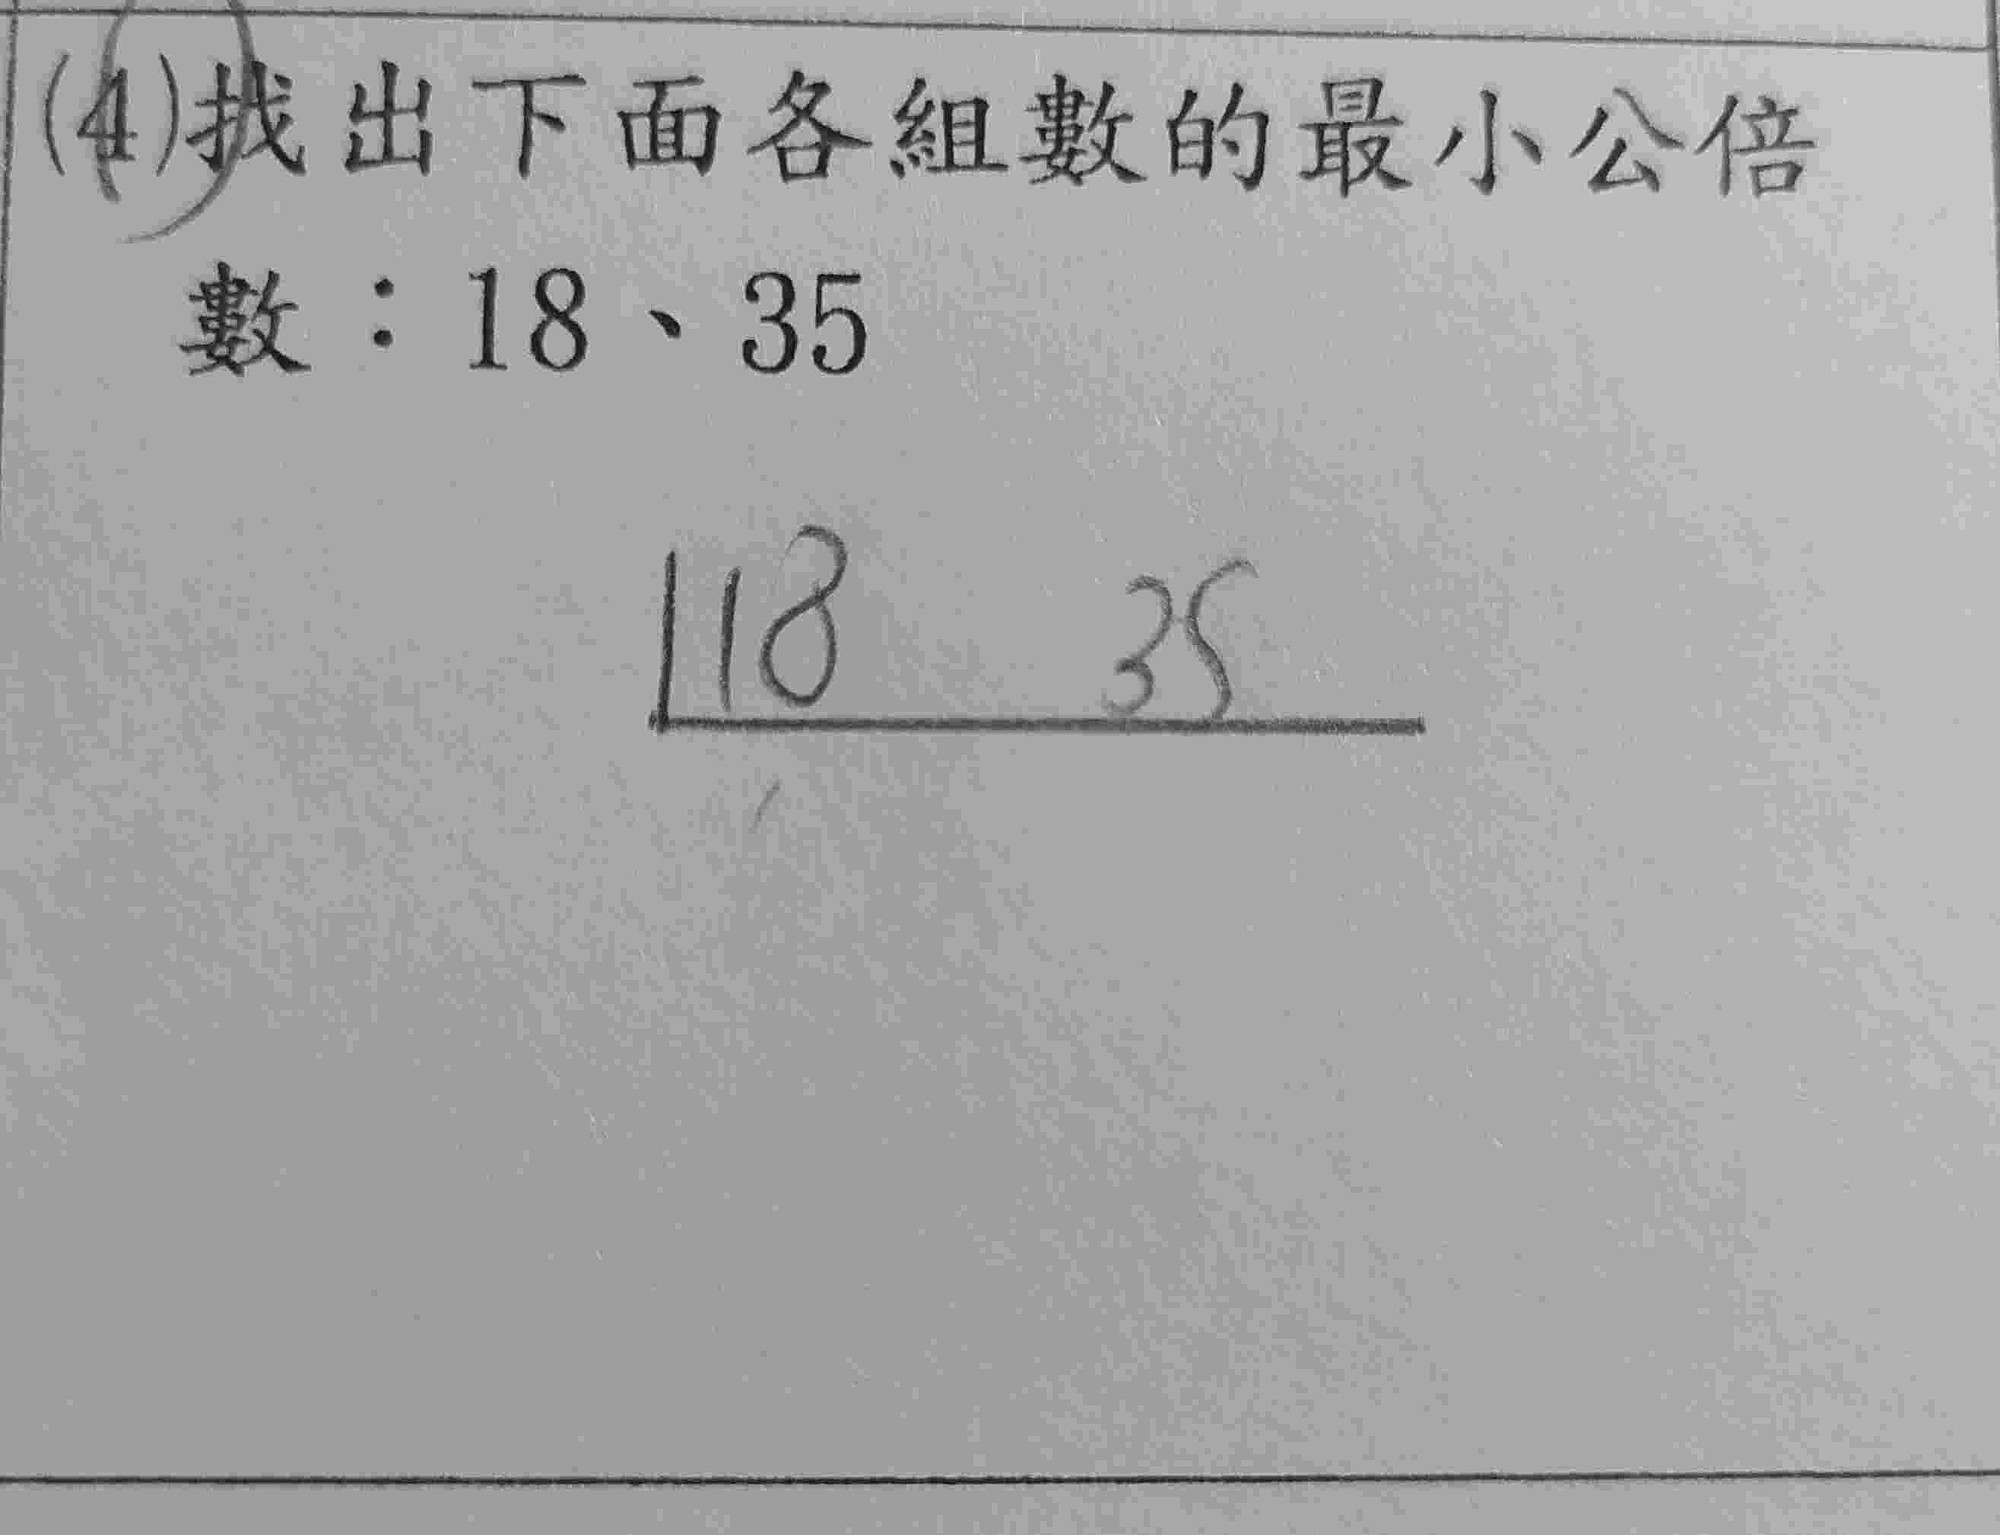 (4)找出下面各組數的最小公倍
數：18、35
18 35